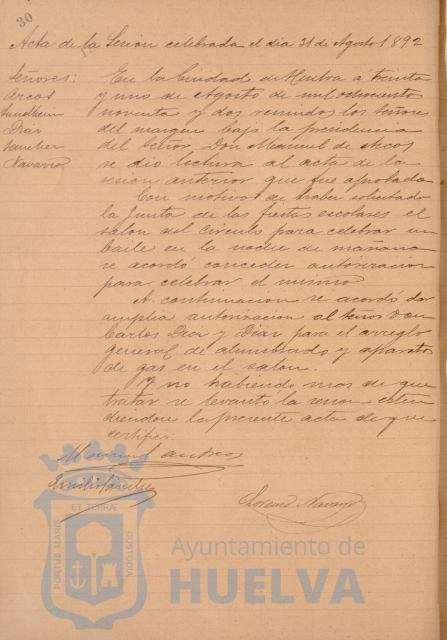 30
Acta de la Sesion celebrada el dia 31 de Agosto 1892
Señores:
Arcos
Sundheim
Diaz
Sanchez
Navarro
En la Ciudad de Huelva á treinta
y uno de Agosto de mil ochocientos
noventa y dos reunidos los señores
del margen bajo la presidencia
del señor, Don Manuel de Arcos
se dio lectura al acta de la
sesion anterior que fue aprobada
Con motivo de haber solicitado
la Junta de las fiestas escolares el
salon del circulo para celebrar un
baile en la noche de mañana
se acordó conceder autorizacion
para celebrar el mismo
A continuacion se acordó dar
amplia autorizacion al señor Don
Carlos Diaz y Diaz para el arreglo
general de alumbrado y aparatos
de gas en el salon.
Y no habiendo mas de que
tratar se levantó la sesion esten
diendose la presente acta de que
certifico:
Manuel de Arcos
Emilio Sanchez
Lorenzo Navarro
PORTUS MARIS ET TERRAE CUSTODIA
Ayuntamiento de
HUELVA